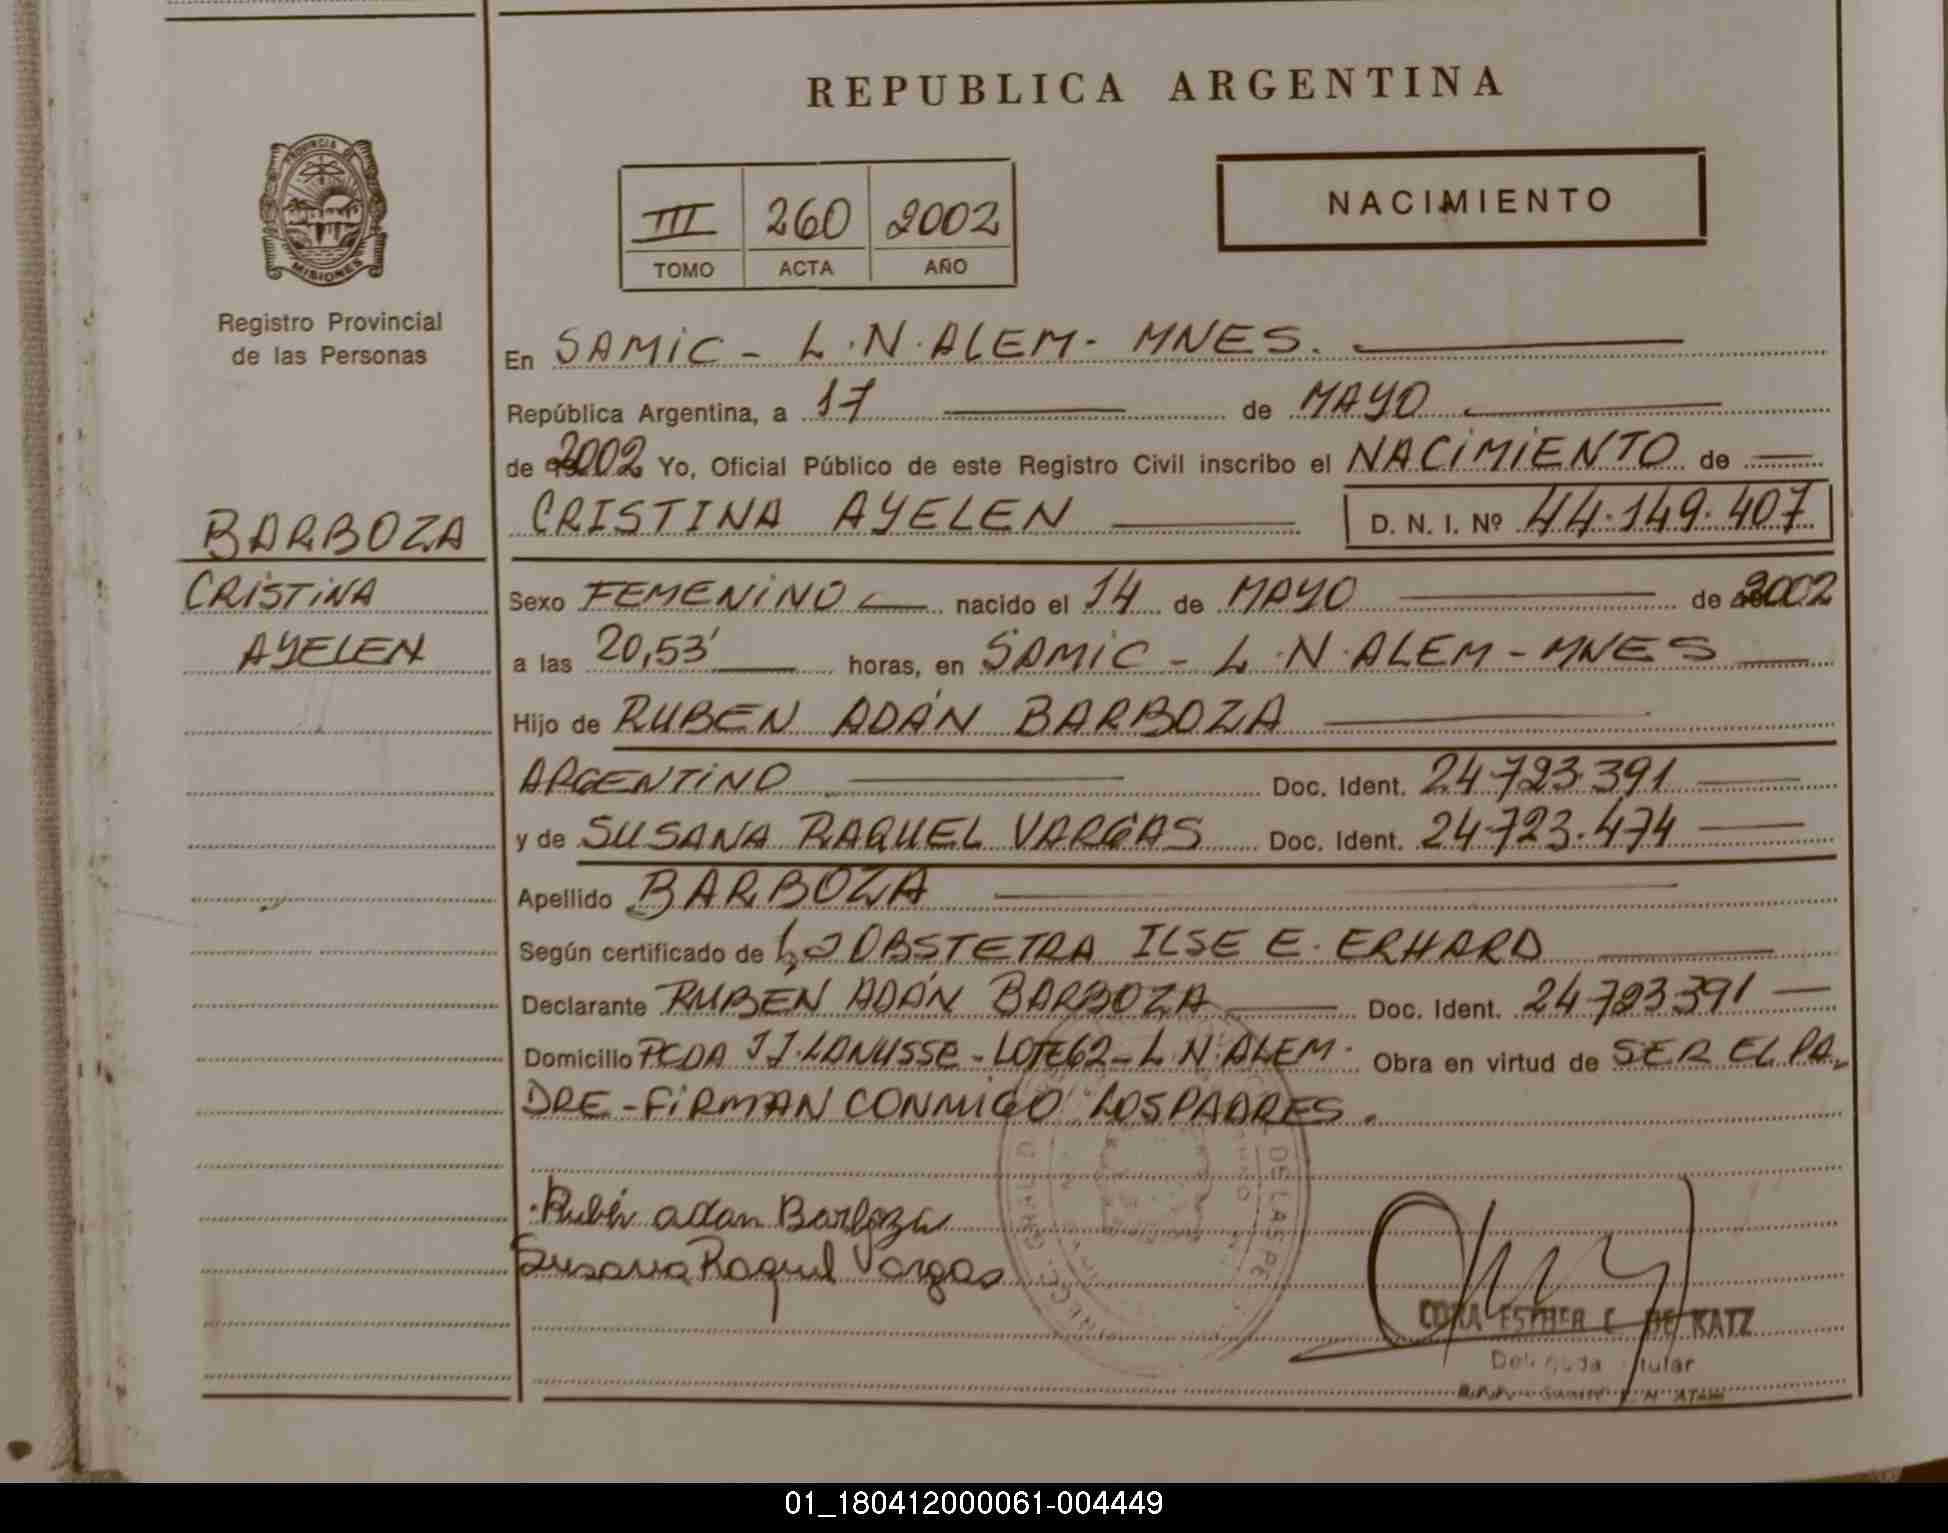 REPUBLICA ARGENTINA
PROVINCIA DE
MISIONES
Registro Provincial
de las Personas
III 260 2002
TOMO ACTA AÑO
NACIMIENTO
En SAMIC - L.N.ALEM - MNES.
República Argentina, a 17 de MAYO
de 2002 Yo, Oficial Público de este Registro Civil inscribo el NACIMIENTO de
BARBOZA
CRISTINA
AYELEN
CRISTINA AYELEN D. N. I. Nº 44.149.407
Sexo FEMENINO nacido el 14 de MAYO de 2002
a las 20,53' horas, en SAMIC - L.N.ALEM - MNES
Hijo de RUBEN ADÁN BARBOZA
ARGENTINO Doc. Ident. 24.723.391
y de SUSANA RAQUEL VARGAS Doc. Ident. 24.723.474
Apellido BARBOZA
Según certificado de La OBSTETRA ILSE E. ERHARD
Declarante RUBEN ADÁN BARBOZA Doc. Ident. 24.723.391
Domicilio PCDA J J. LANUSSE - LOTE 62 - L.N.ALEM. Obra en virtud de SER EL PA-
DRE - FIRMAN CONMIGO LOS PADRES.
Rubén adan Barboza
Susana Raquel Vargas
DE LAS PE
CORA ESTHER C. DE KATZ
01_180412000061-004449